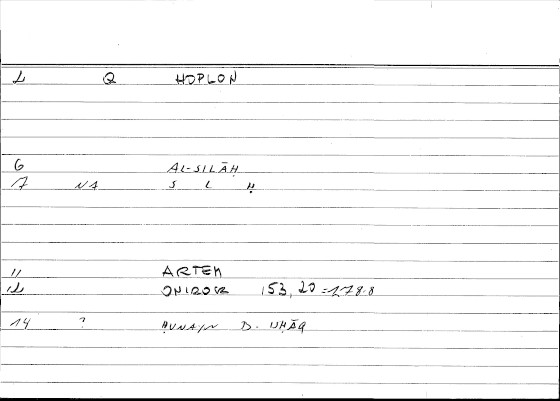 1 Q HOPLON
6 AL-SILĀḤ
7 NA S L Ḥ
11 ARTEM
12 ONIROCR 153,20 = 278.8
14 ? ḤUNAIN B. ISḤĀQ